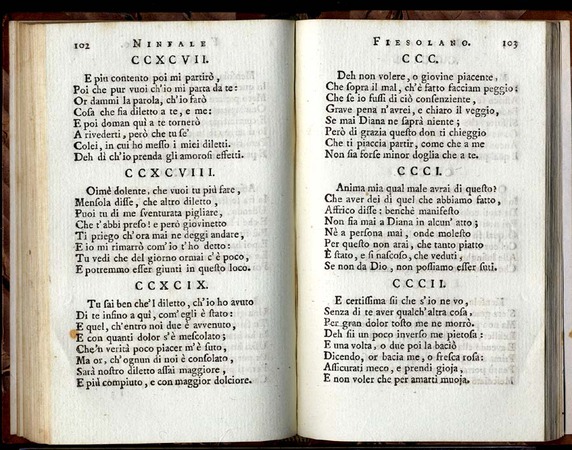 102 NINFALE
CCXCVII.
E più contento poi mi partirò,
Poi che pur vuoi ch'io mi parta da te:
Or dammi la parola, ch'io farò
Cosa che sia diletto a te, e me:
E poi doman quì a te tornerò
A rivederti, però che tu se'
Colei, in cui ho messo i miei diletti.
Deh di ch'io prenda gli amorosi effetti.
CCXCVIII.
Oimè dolente, che vuoi tu più fare,
Mensola disse, che altro diletto,
Puoi tu di me sventurata pigliare,
Che t'abbi preso! e però giovinetto
Ti priego ch'ora mai ne deggi andare,
E io mi rimarrò com'io t'ho detto:
Tu vedi che del giorno ormai c'è poco,
E potremmo esser giunti in questo loco.
CCXCIX.
Tu sai ben che'l diletto, ch'io ho avuto
Di te insino a quì, com'egli è stato:
E quel, ch'entro noi due è avvenuto,
E con quanti dolor s'è mescolato;
Che'n verità poco piacer m'è suto,
Ma or, ch'ognun di noi è consolato,
Sarà nostro diletto assai maggiore,
E più compiuto, e con maggior dolciore.
FIESOLANO. 103
CCC.
Deh non volere, o giovine piacente,
Che sopra il mal, ch'è fatto facciam peggio:
Che se io fussi di ciò consenziente,
Grave pena n'avrei, e chiaro il veggio,
Se mai Diana ne saprà niente;
Però di grazia questo don ti chieggio
Che ti piaccia partir, come che a me
Non sia forse minor doglia che a te.
CCCI.
Anima mia qual male avrai di questo?
Che aver dei di quel che abbiamo fatto,
Affrico disse: benchè manifesto
Non sia mai a Diana in alcun' atto;
Nè a persona mai, onde molesto
Per questo non arai, che tanto piatto
È stato, e sì nascoso, che veduti,
Se non da Dio, non possiamo esser suti.
CCCII.
E certissima sii che s'io ne vo,
Senza di te aver qualch'altra cosa,
Per gran dolor tosto me ne morrò.
Deh sii un poco inverso me pietosa:
E una volta, o due poi la baciò
Dicendo, or bacia me, o fresca rosa:
Assicurati meco, e prendi gioja,
E non voler che per amarti muoja.